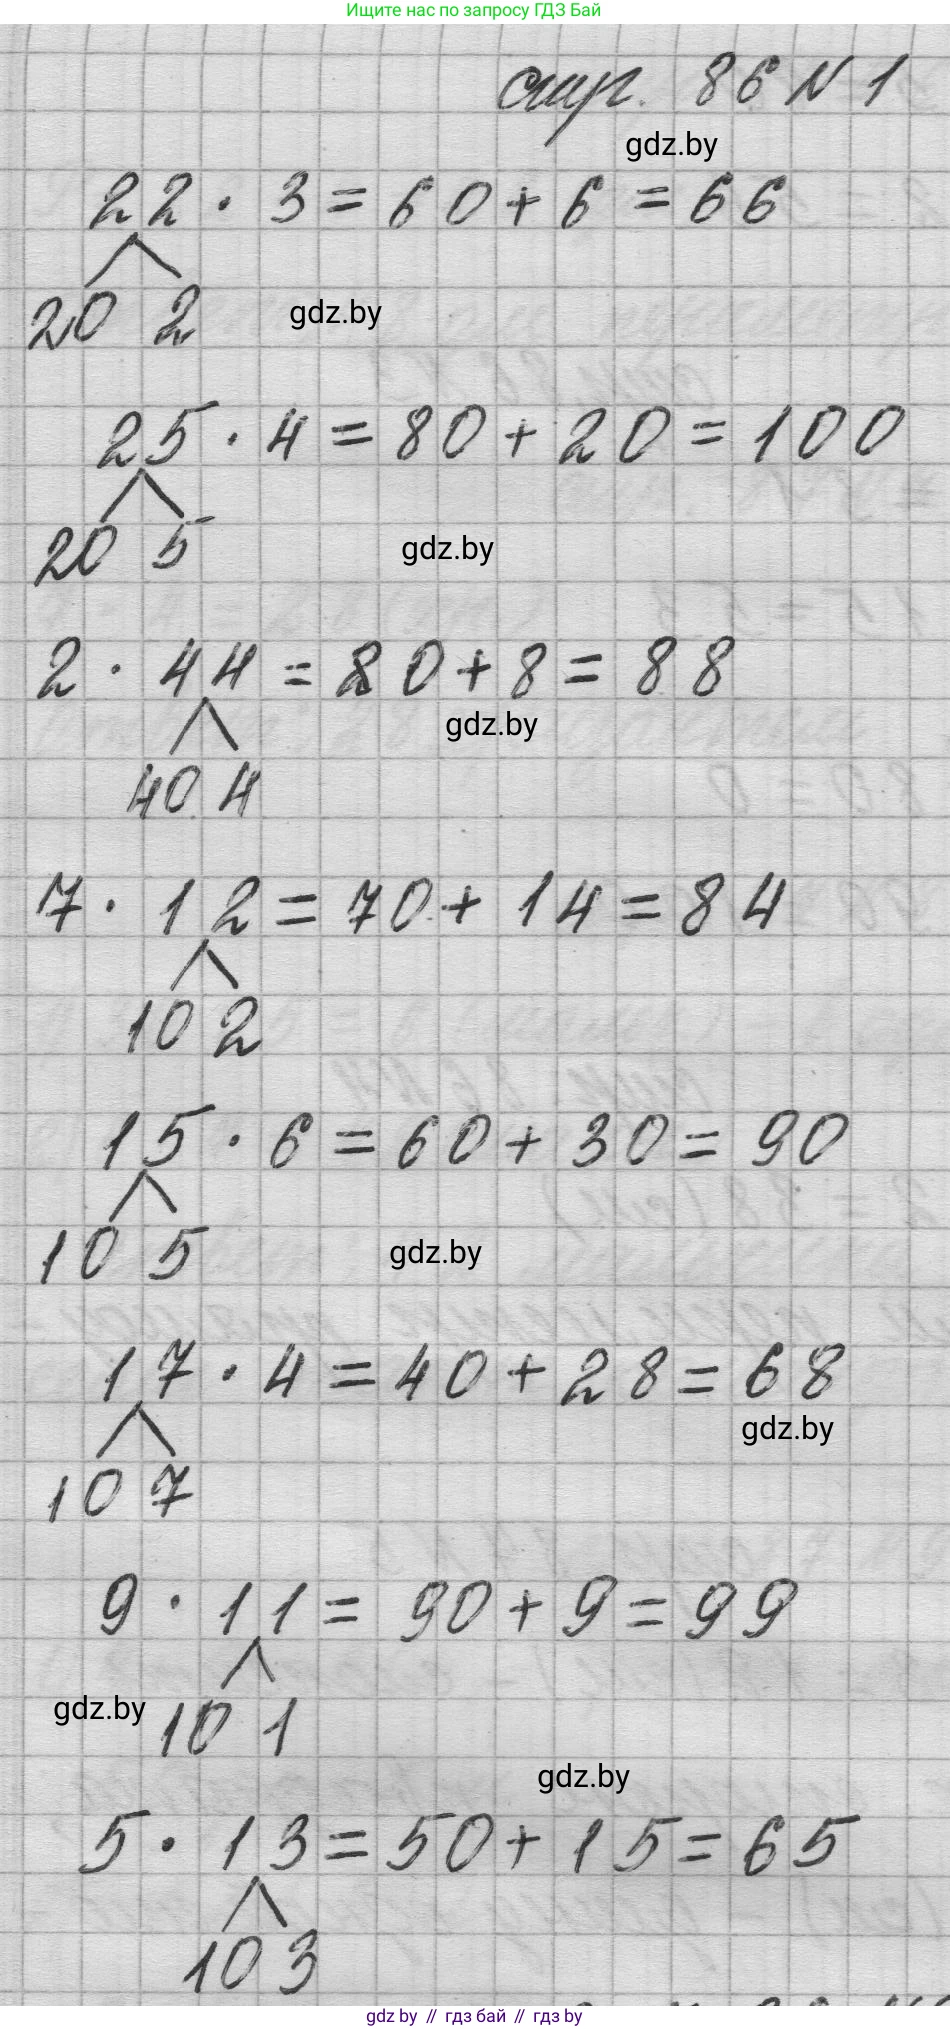 Ищите нас по запросу ГДЗ Бай
стр. 86 N 1
gdz.by
22 · 3 = 60 + 6 = 66
20 2
gdz.by
25 · 4 = 80 + 20 = 100
20 5
gdz.by
2 · 44 = 80 + 8 = 88
gdz.by
40 4
7 · 12 = 70 + 14 = 84
10 2
15 · 6 = 60 + 30 = 90
10 5
gdz.by
17 · 4 = 40 + 28 = 68
gdz.by
10 7
9 · 11 = 90 + 9 = 99
gdz.by
10 1
gdz.by
5 · 13 = 50 + 15 = 65
10 3
gdz by // гдз бай // гдз by